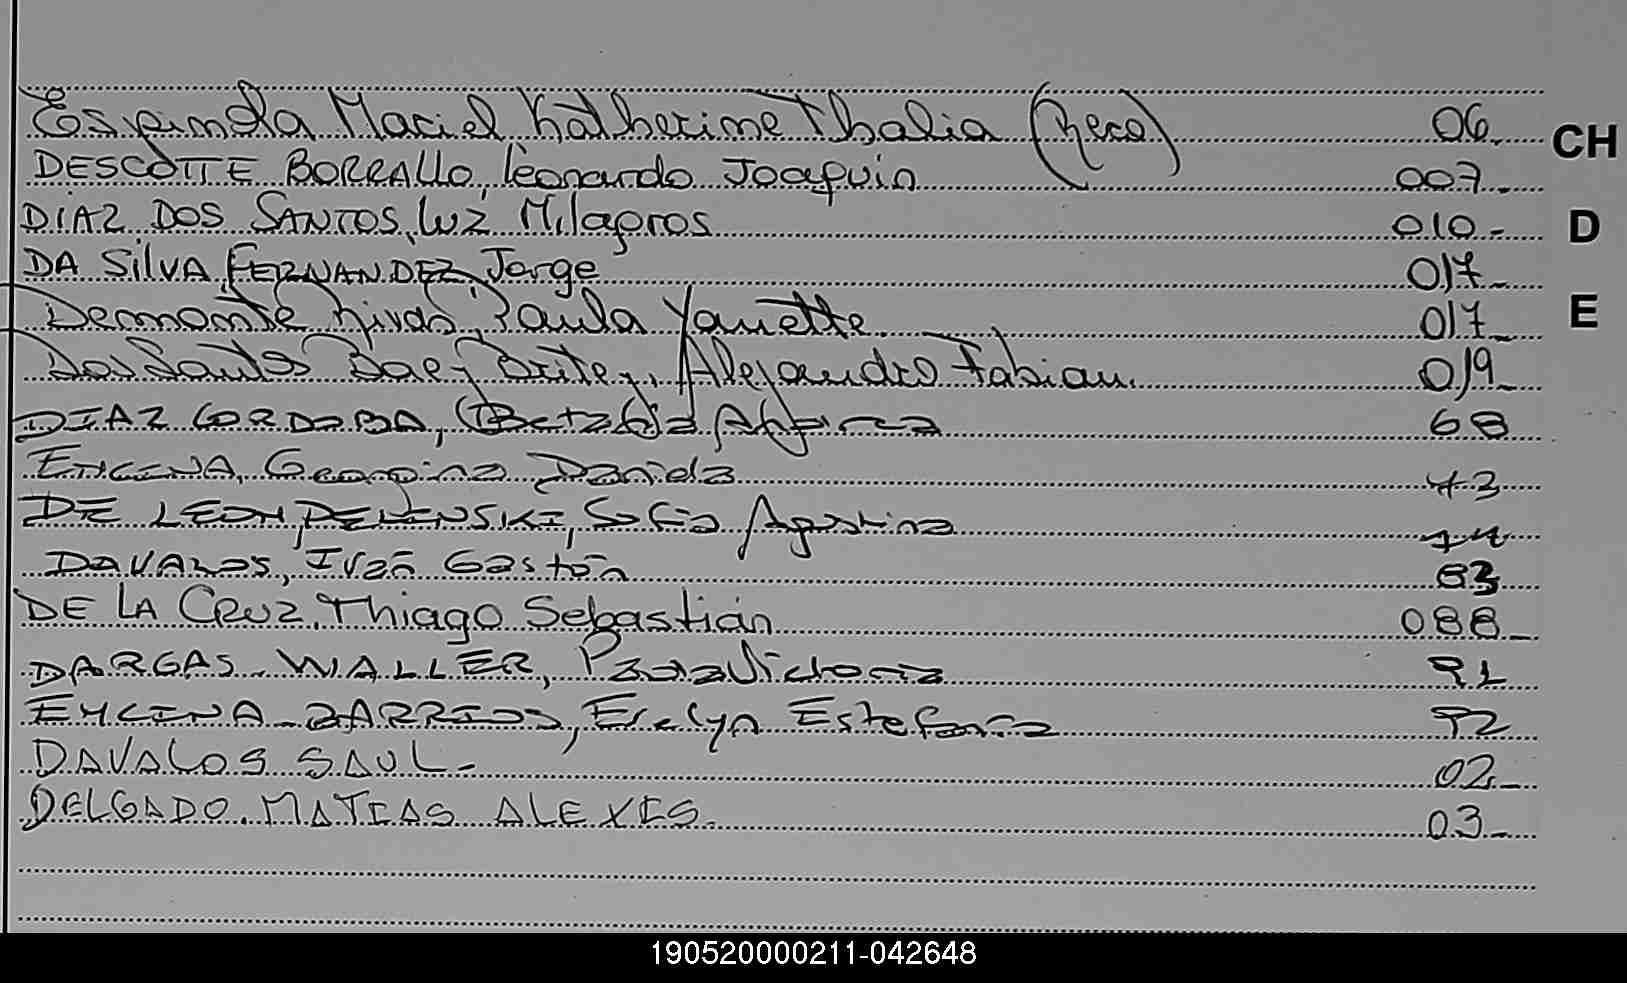 Espindola Maciel Katherine Thalia (Reco) 06.
CH
DESCOTTE BORRALLO, Leonardo Joaquin 007.
DIAZ DOS SANTOS, LUZ Milagros 010.-
D
DA SILVA FERNANDEZ, Jorge 017-
Demonte Rivas, Paula Yanette 017-
E
Dos Santos Baez Britez, Alejandro Fabian. 019-
DIAZ CORDOBA, 68
ENCINA, Georgina Daniela 73
DE LEON PELINSKI, Sofia Agustina
DAVALOS, Iván Gastón 83
DE LA CRUZ, Thiago Sebastián 088-
DARGAS WALLER, Paula Victoria 91
ENCINA BARRIOS, Evelyn Estefania 92
DAVALOS SAUL- 02-
DELGADO. MATIAS ALEXIS. 03-
190520000211-042648